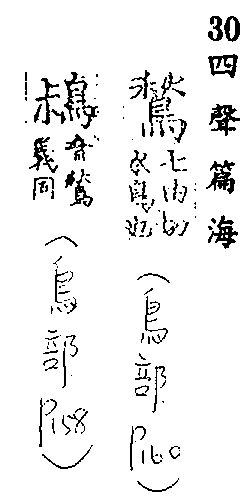 30 四聲篇海
鶖 七由切 水鳥也 (鳥部 P160)
音鶖 義同 (鳥部 P158)